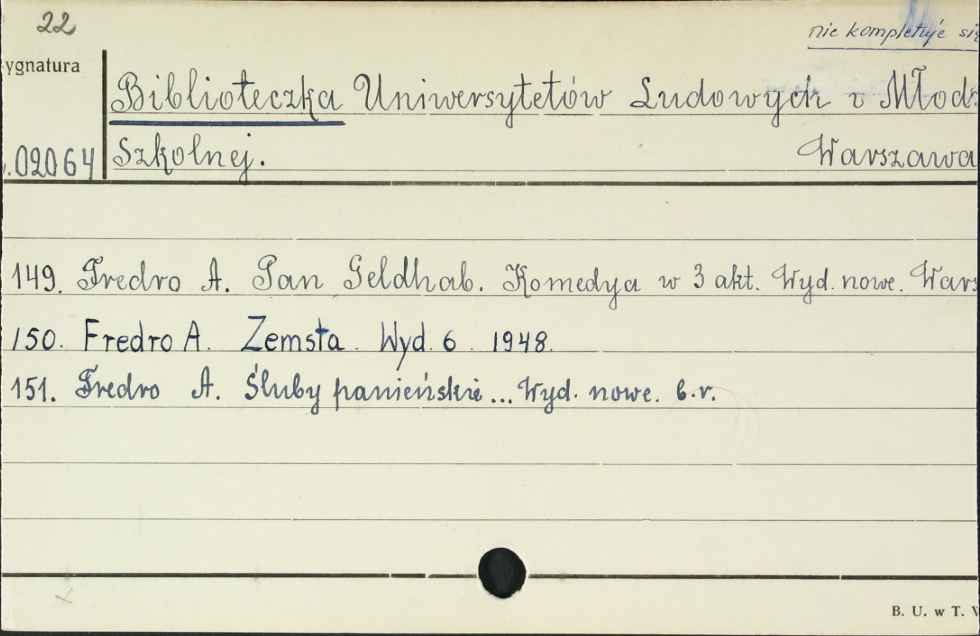 22
nie kompletuje się
ygnatura
Biblioteczka Uniwersytetów Ludowych i Młodz
.02064 Szkolnej. Warszawa
149. Fredro A. Pan Geldhab. Komedya w 3 akt. Wyd. nowe. Wars
150. Fredro A. Zemsta. Wyd. 6. 1948.
151. Fredro A. Śluby panieńskie... Wyd. nowe. b.r.
B. U. w T.